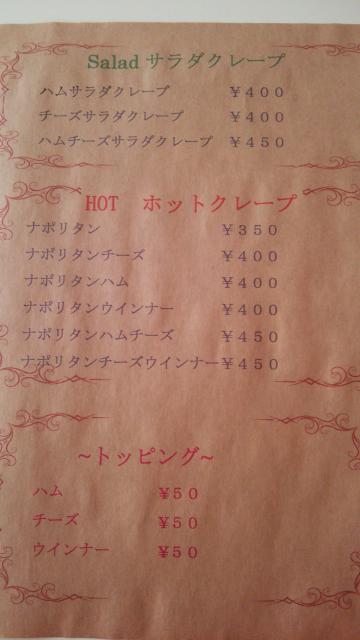 Salad サラダクレープ
ハムサラダクレープ ￥４００
チーズサラダクレープ ￥４００
ハムチーズサラダクレープ ￥４５０
HOT ホットクレープ
ナポリタン ￥３５０
ナポリタンチーズ ￥４００
ナポリタンハム ￥４００
ナポリタンウインナー ￥４００
ナポリタンハムチーズ ￥４５０
ナポリタンチーズウインナー￥４５０
~トッピング~
ハム ￥５０
チーズ ￥５０
ウインナー ￥５０